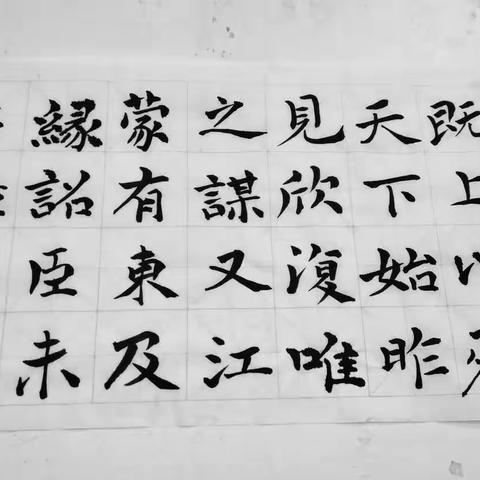 既上
天下始昨
見欣復唯
之謀又江
蒙有東及
縁詔臣未